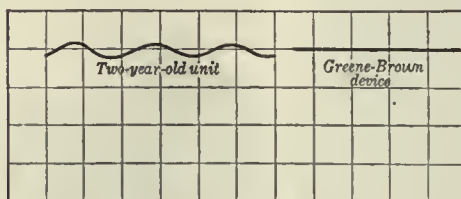 Two-year-old unit
Greene-Brown
device